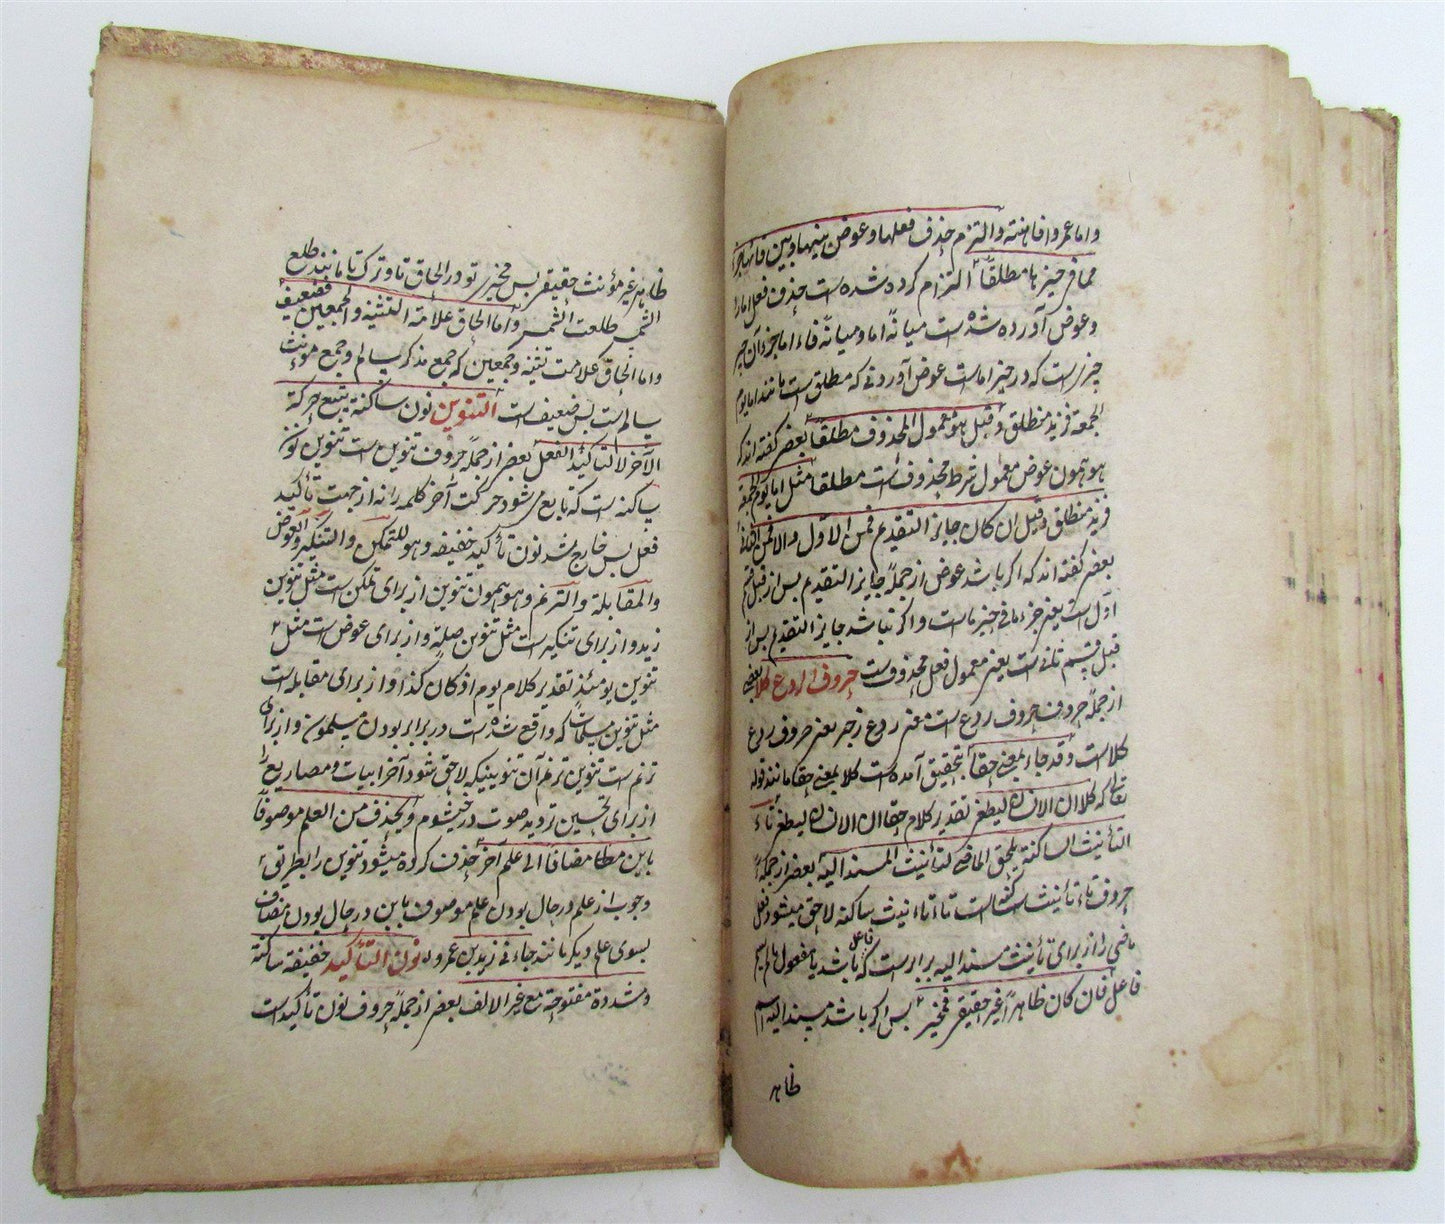 واما عمرو افاهنته والتزم حذف فعلها وعوض بینهما وبین فائها جزء
مما فی حیزها مطلقا التزام کرده شده است حذف فعل اما را
وعوض آورده شده است میانه اما ومیانه فاء اما جزء آن چیز
چیزاست که در حیز اماست عوض آوردنی که مطلق است مانند اما یوم
الجمعة فزید منطلق وقیل هو معمول المحذوف مطلقا بعضی گفته اند که
هو همون عوض معمول شرط محذوف است مطلقا مثل اما یوم الجمعة
فزید منطلق وقیل ان کان جایز التقدیم فمن الاول والا فمن الثانی
بعضی گفته اند که اگر باشد عوض از جمله جایز التقدیم پس از قبل قسم
اول است یعنی جزء ما فی حیزها است واگر نباشد جایز التقدیم پس از
قبل قسم ثانی است یعنی معمول فعل محذوف است حروف الردع کلا بعضی
از جمله حروف حروف ردع است معنی ردع زجر یعنی حروف ردع
کلا است وقد جاء بمعنی حقا بتحقیق آمده است کلا بمعنی حقا مانند قوله
تعالی که کلا ان الانسان لیطغی تقدیر کلام حقا ان الانسان لیطغی تاء
التأنیث الساکنة یلحق الماضی لتأنیث المسند الیه بعضی از جمله
حروف تاء تأنیث ساکنه است تاء تأنیث ساکنه لاحق میشود فعل
ماضی را از برای تأنیث مسند الیه برابر است که فاعل باشد یا مفعول مالم یسم
فاعله فان کان ظاهرا غیر حقیقی فمخیر پس اگر باشد مسند الیه اسم
ظاهر
ظاهر غیر مؤنث حقیقی پس مخیری تو در الحاق تا وترک تا مانند طلع
الشمس طلعت الشمس واما الحاق علامة التثنیه والجمعین فضعیف
واما الحاق علامت تثنیه وجمعین که جمع مذکر سالم وجمع مونث
سالم است پس ضعیف است التنوین نون ساکنة یتبع حرکة
الآخر لا لتاکید الفعل بعضی از جمله حروف تنوین است تنوین نون
ساکنه است که تابع می شود حرکت آخر کلمه را نه از جهت تأکید
فعل پس خارج شد نون تأکید خفیفه وهو للتمکن والتنکیر والعوض
والمقابلة والترنم وهو همون تنوین از برای تمکن است مثل تنوین
زید واز برای تنکیر است مثل تنوین صه واز برای عوض است مثل
تنوین یومئذ تقدیر کلام یوم اذ کان کذا واز برای مقابله است
مثل تنوین مسلمات که واقع شده است در برابر بودن مسلمون واز برای
ترنم است تنوین ترنم آن تنوینیکه لاحق شود آخر ابیات ومصاریع را
از برای تحسین تردید صوت در خیشوم ویحذف من العلم موصوفا
بابن مطلقا مضافا الی علم آخر حذف کرده میشود تنوین را بطریق
وجوب از علم در حال بودن علم موصوف بابن در حال بودن مضاف
بسوی علم دیگر مانند جاءنی زید بن عمرو نون التأکید خفیفة ساکنة
ومشددة مفتوحة مع غیر الالف بعضی از جمله حروف نون تأکید است